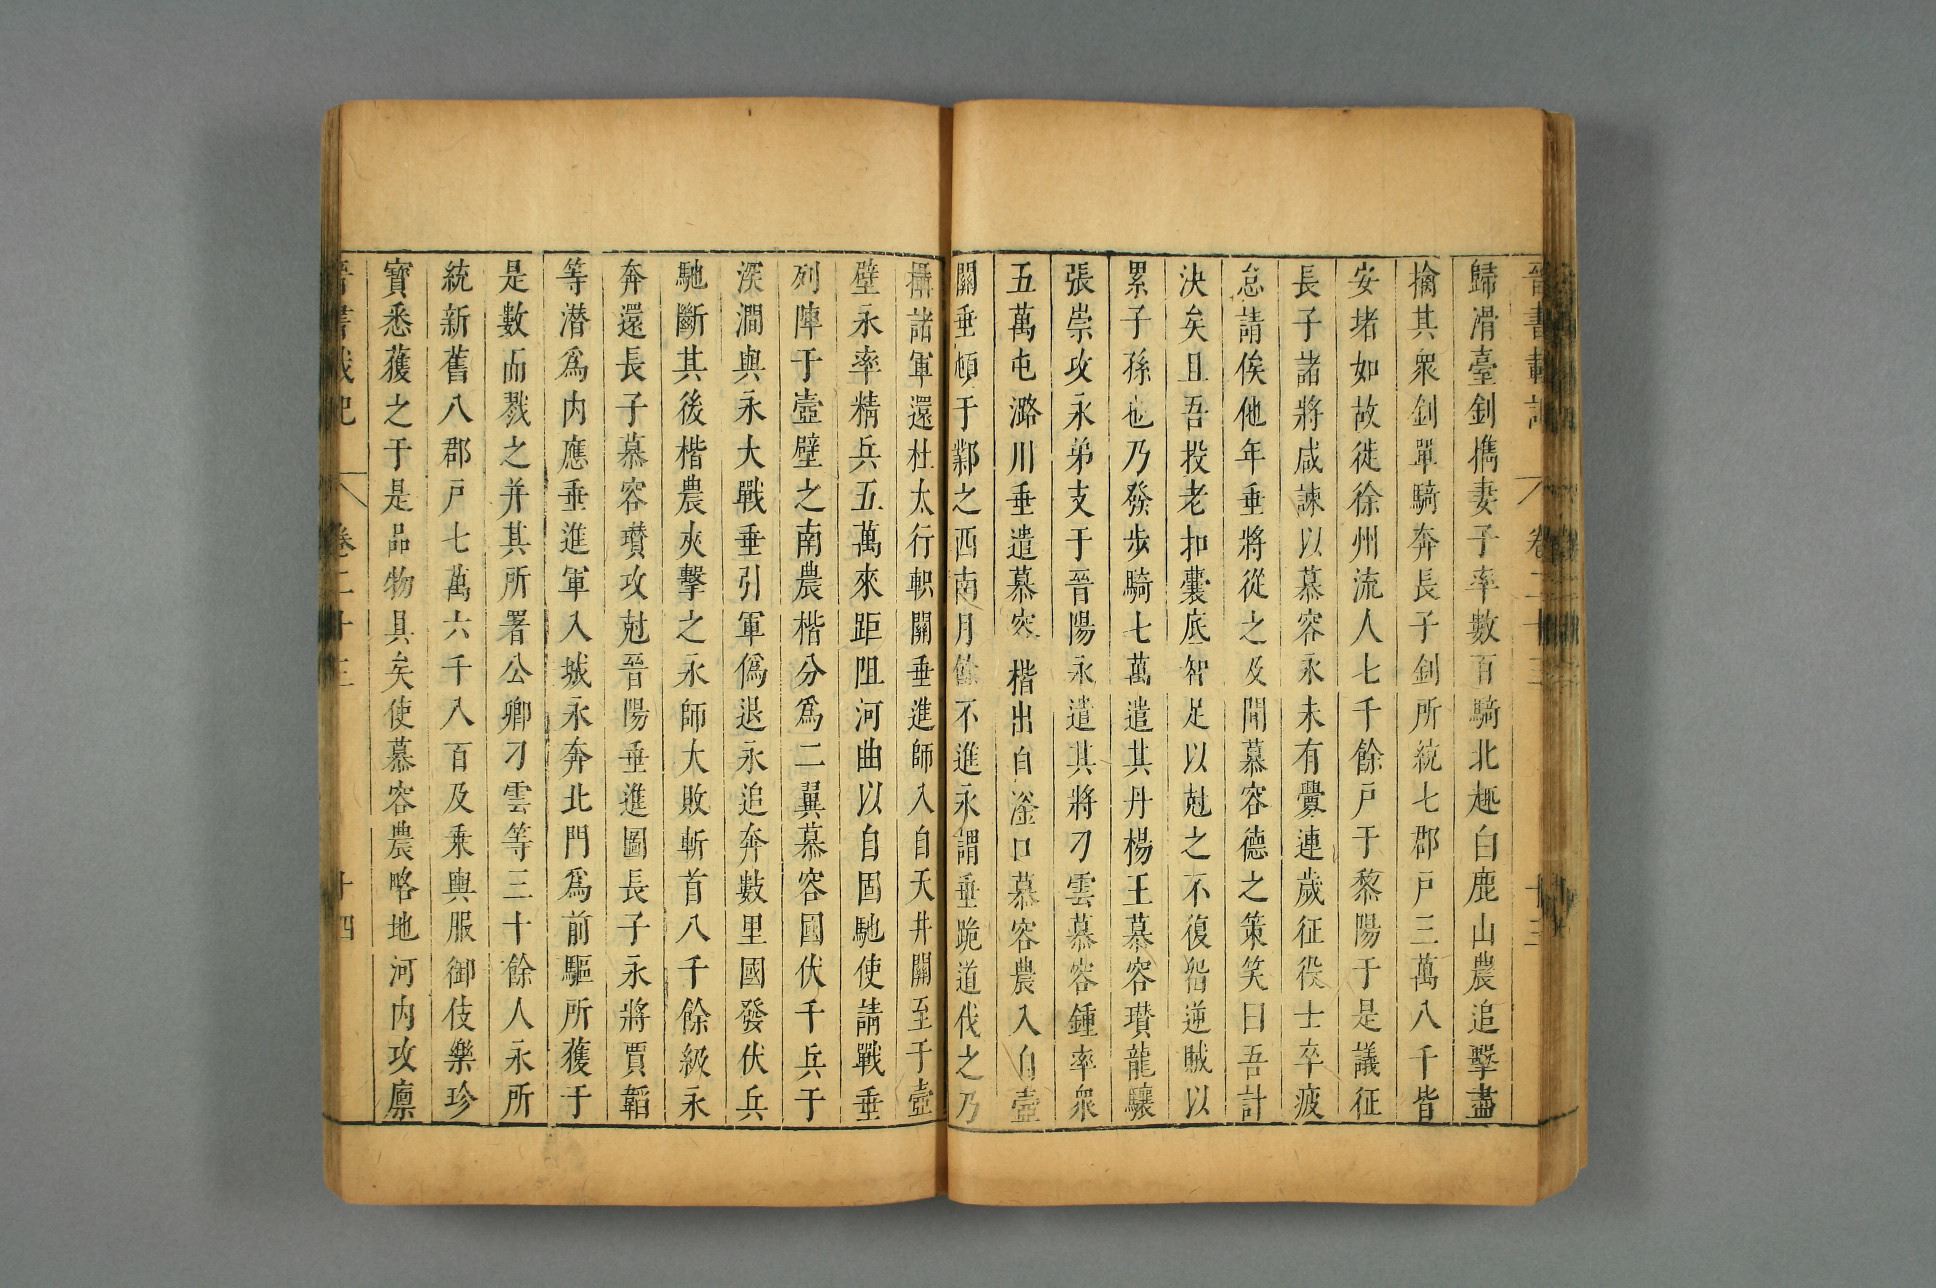 晉書載記 卷二十三 十三
歸滑臺釗攜妻子率數百騎北趣白鹿山農追擊盡
擒其衆釗單騎奔長子釗所統七郡戸三萬八千皆
安堵如故徙徐州流人七千餘戸于黎陽于是議征
長子諸將咸諫以慕容永未有釁連歲征役士卒疲
怠請俟他年垂將從之及聞慕容德之策笑曰吾計
決矣且吾投老扣囊底智足以尅之不復留逆賊以
累子孫也乃發步騎七萬遣其丹楊王慕容瓚龍驤
張崇攻永弟支于晉陽永遣其將刁雲慕容鍾率衆
五萬屯潞川垂遣慕容楷出自滏口慕容農入自壺
關垂頓于鄴之西南月餘不進永謂垂詭道伐之乃
攝諸軍還杜太行軹關垂進師入自天井關至于壺
壁永率精兵五萬來距阻河曲以自固馳使請戰垂
列陣于壺壁之南農楷分爲二翼慕容國伏千兵于
深澗與永大戰垂引軍僞退永追奔數里國發伏兵
馳斷其後楷農夾擊之永師大敗斬首八千餘級永
奔還長子慕容瓚攻尅晉陽垂進圖長子永將賈韜
等潛爲内應垂進軍入城永奔北門爲前驅所獲于
是數而戮之并其所署公卿刁雲等三十餘人永所
統新舊八郡戸七萬六千八百及乘輿服御伎樂珍
寳悉獲之于是品物具矣使慕容農略地河内攻廪
晉書載記 卷二十三 十四